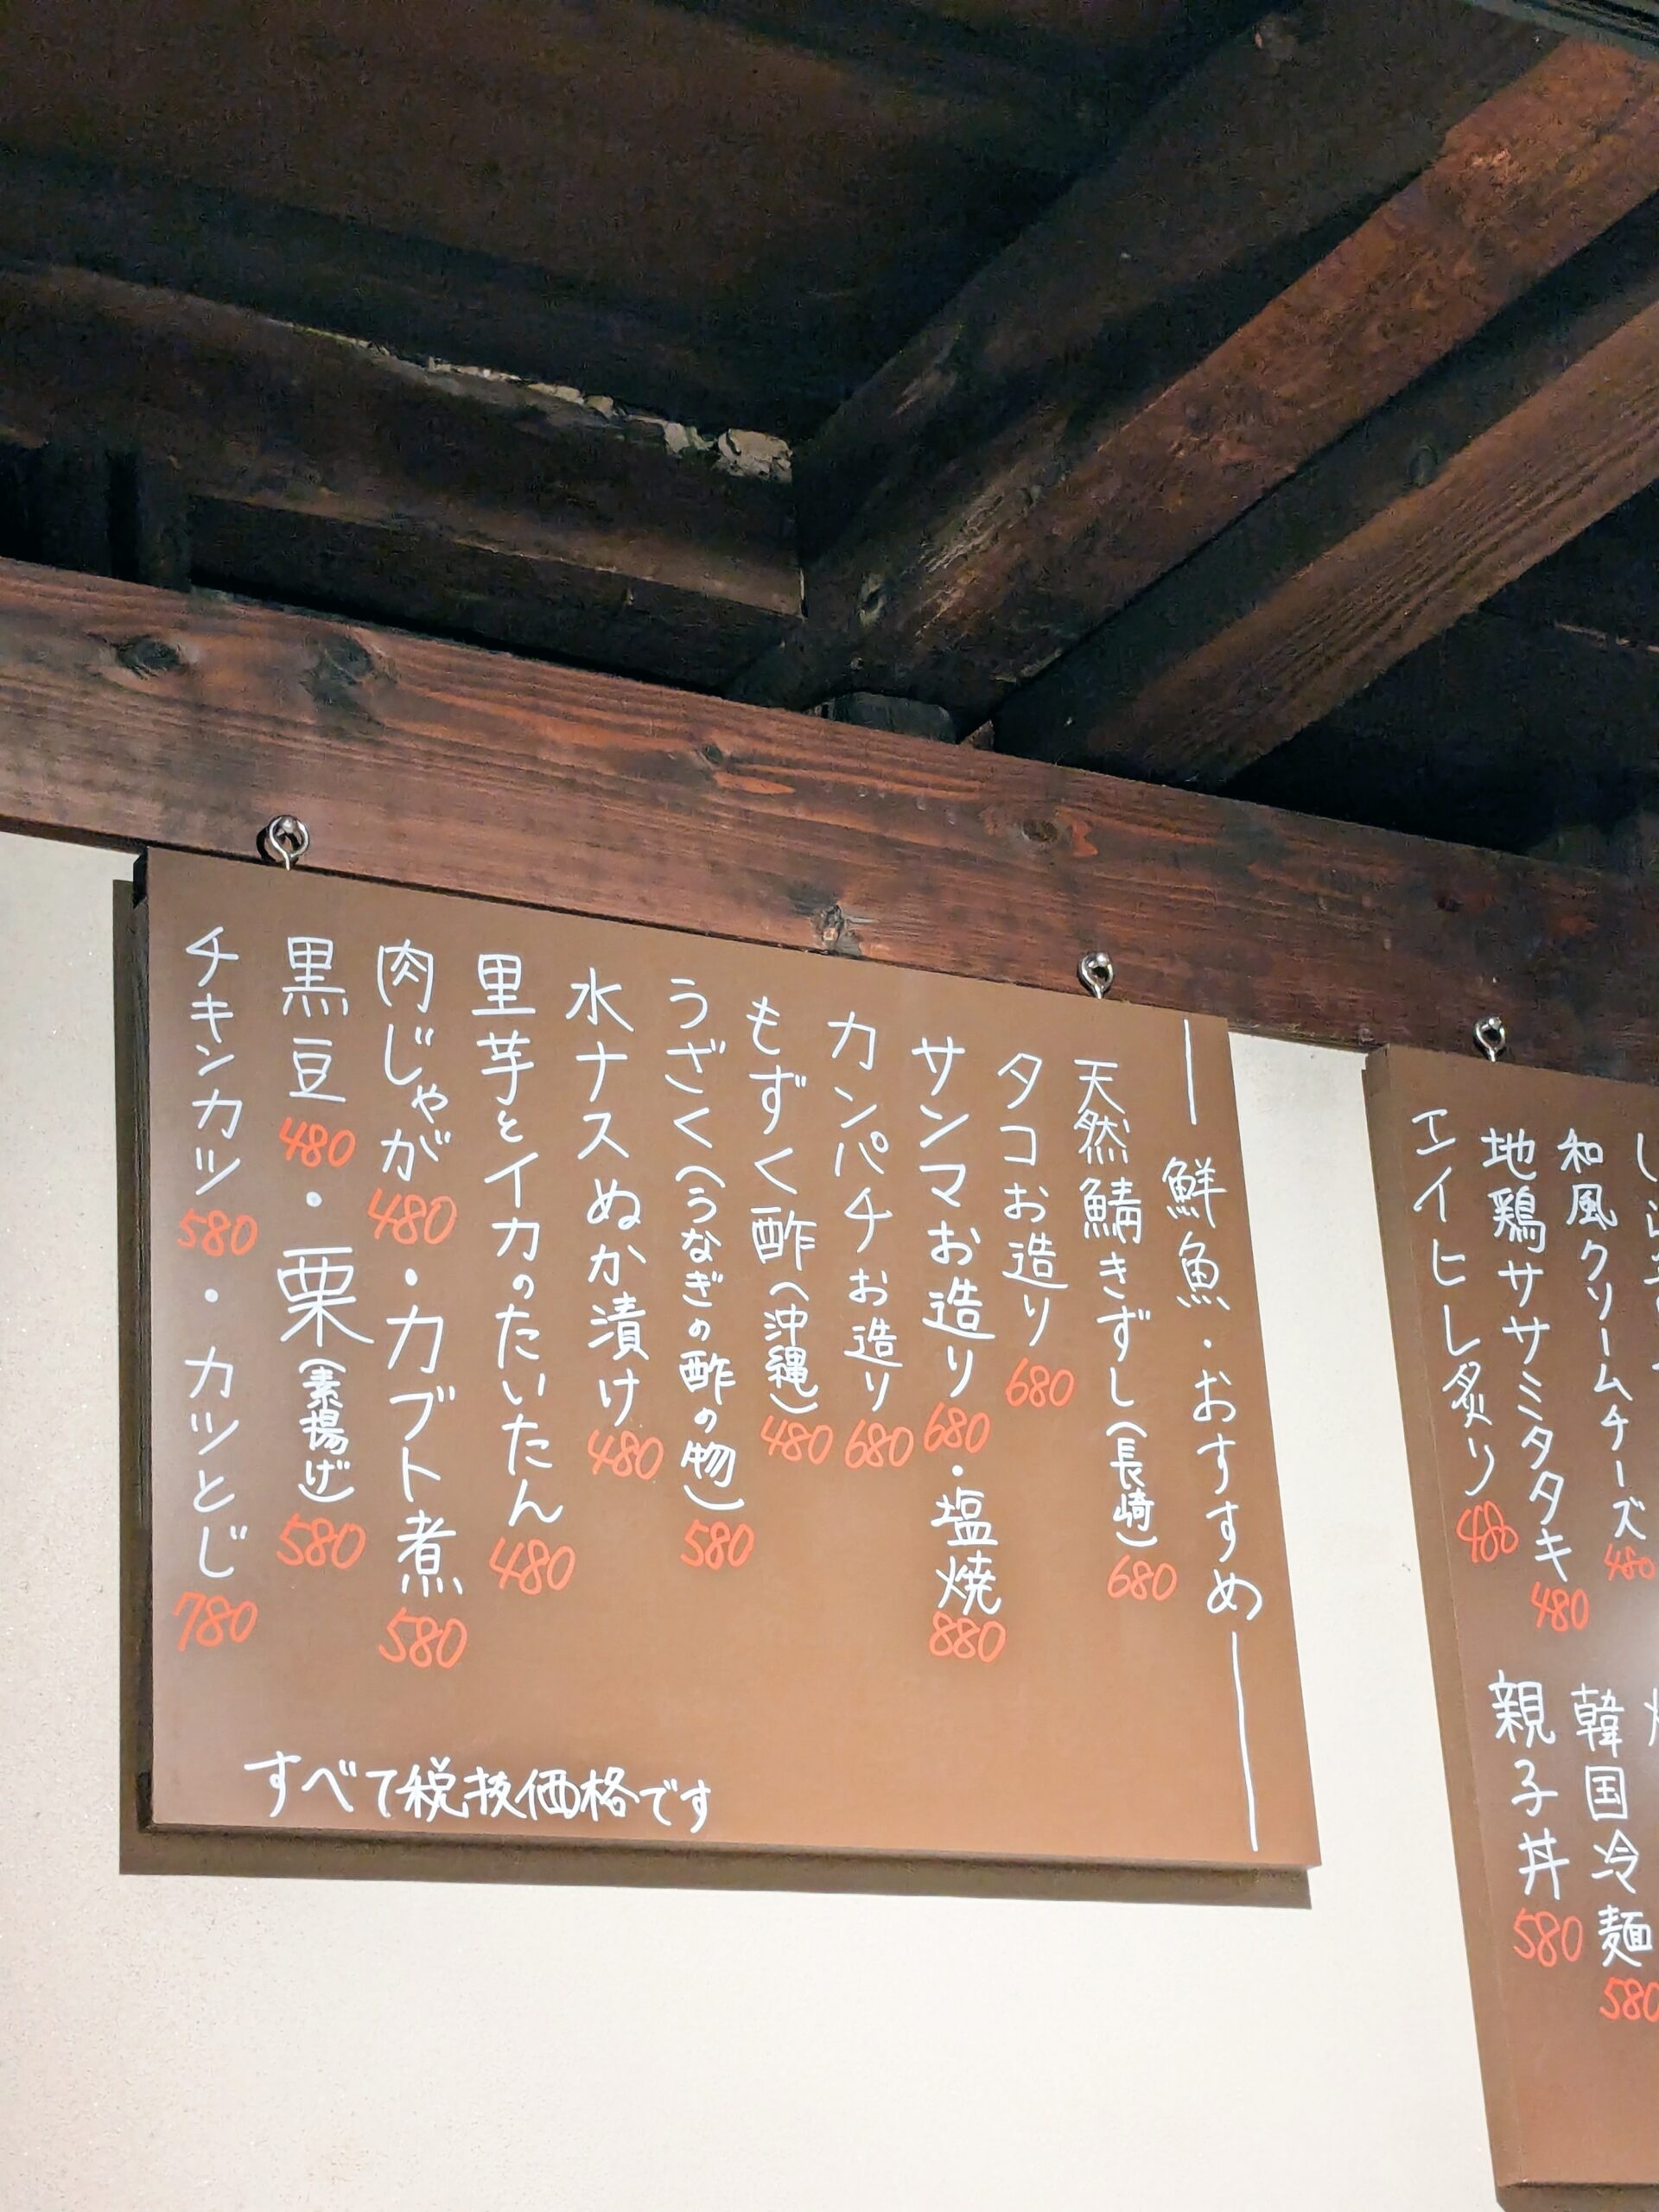 鮮魚・おすすめ
天然鯖きずし(長崎) 680
タコお造り 680
サンマお造り 680・塩焼 880
カンパチお造り 680
もずく酢(沖縄) 480
うざく(うなぎの酢の物) 580
水ナスぬか漬け 480
里芋とイカのたいたん 480
肉じゃが 480・カブト煮 580
黒豆 480・栗(素揚げ) 580
チキンカツ 580・カツとじ 780
すべて税抜価格です
和風クリームチーズ 480
地鶏ササミタタキ 480
エイヒレ炙り 480
韓国冷麺 580
親子丼 580